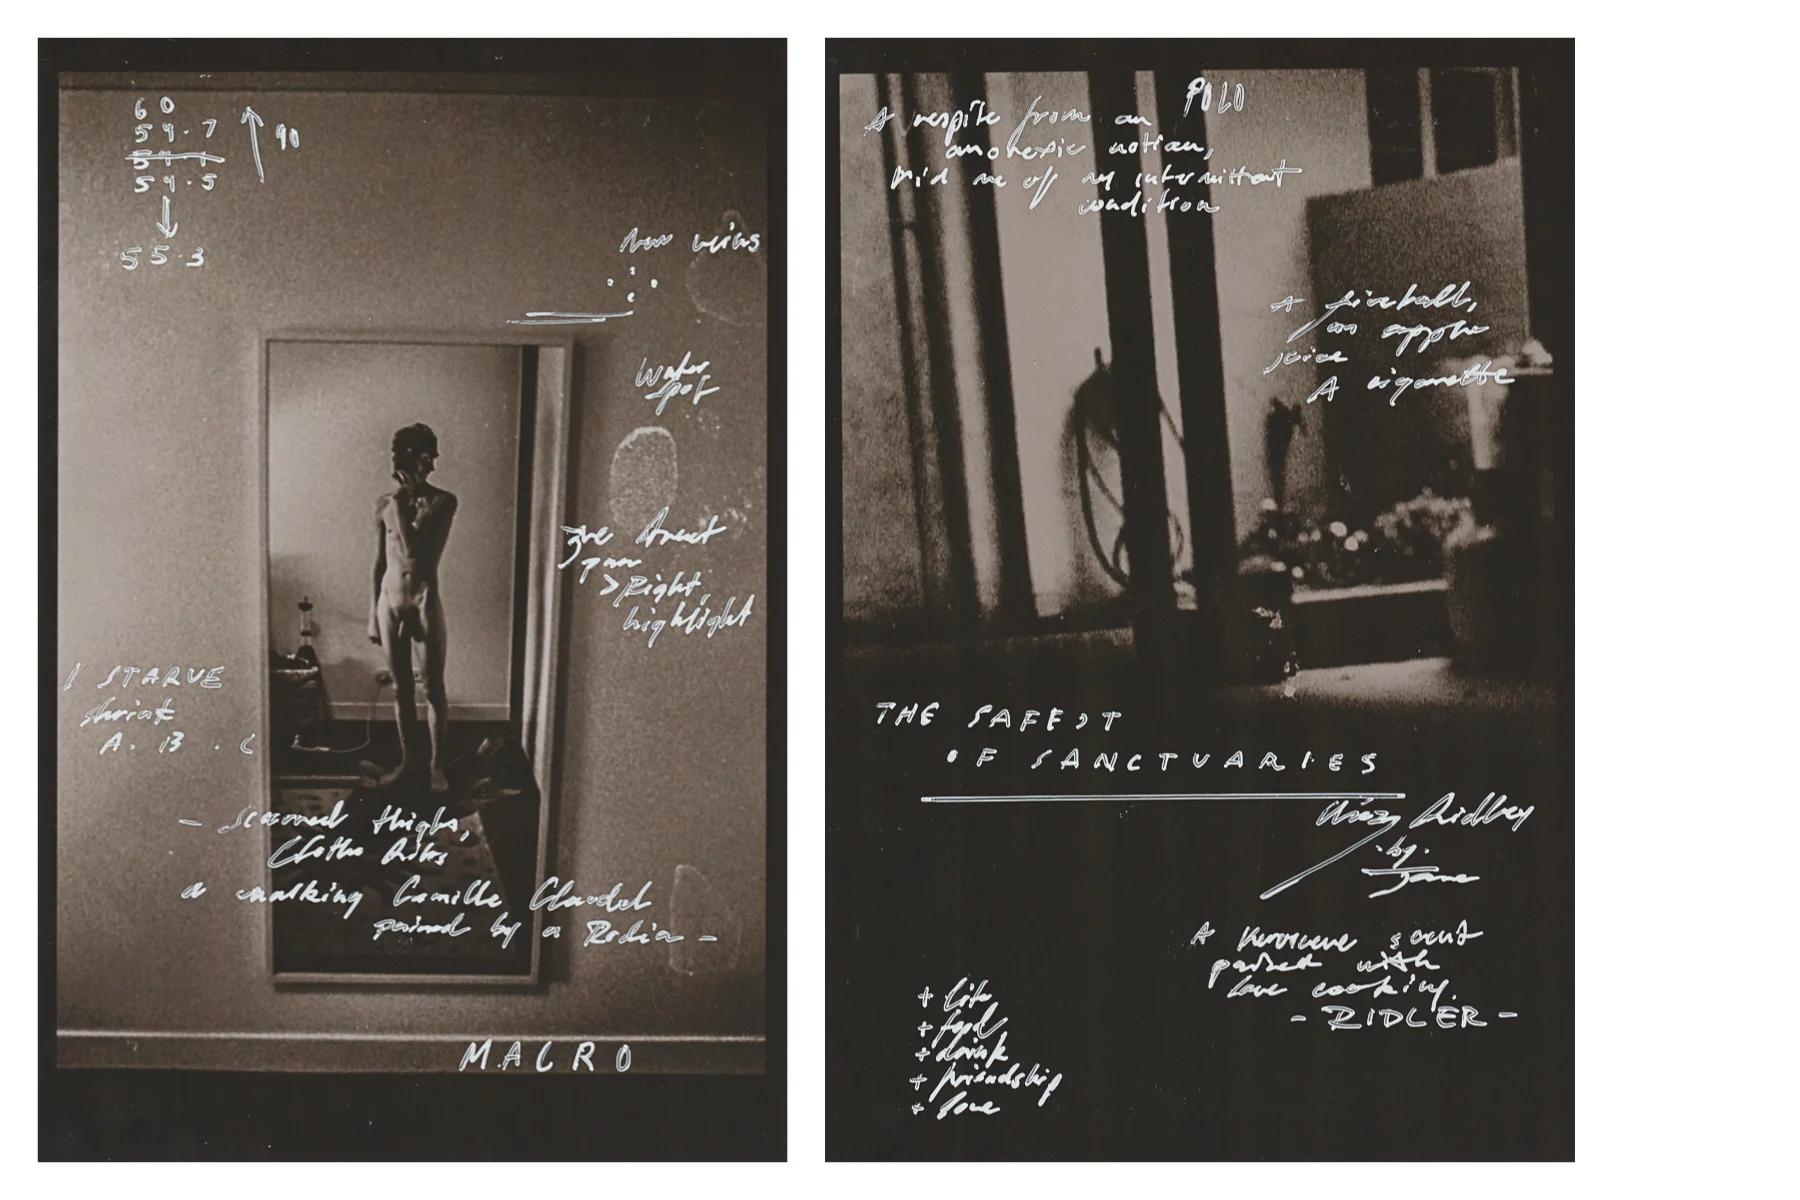 60
59.7
54.5
55.3
90
Water
spot
> Right,
highlight
I STARVE
shrink
A. B. C
- scanned thighs,
ribs
a walking Camille Claudel
pained by a Rodin -
MACRO
POLO
A respite from an
anorexic notion,
Rid me of my intermittent
condition
A fireball,
an apple
juice
A cigarette
THE SAFEST
OF SANCTUARIES
Ridley
.by.
Jane
A kerosene scent
paired with
love cooking.
- RIDLER -
+ life
+ food
+ drink
+ friendship
+ love